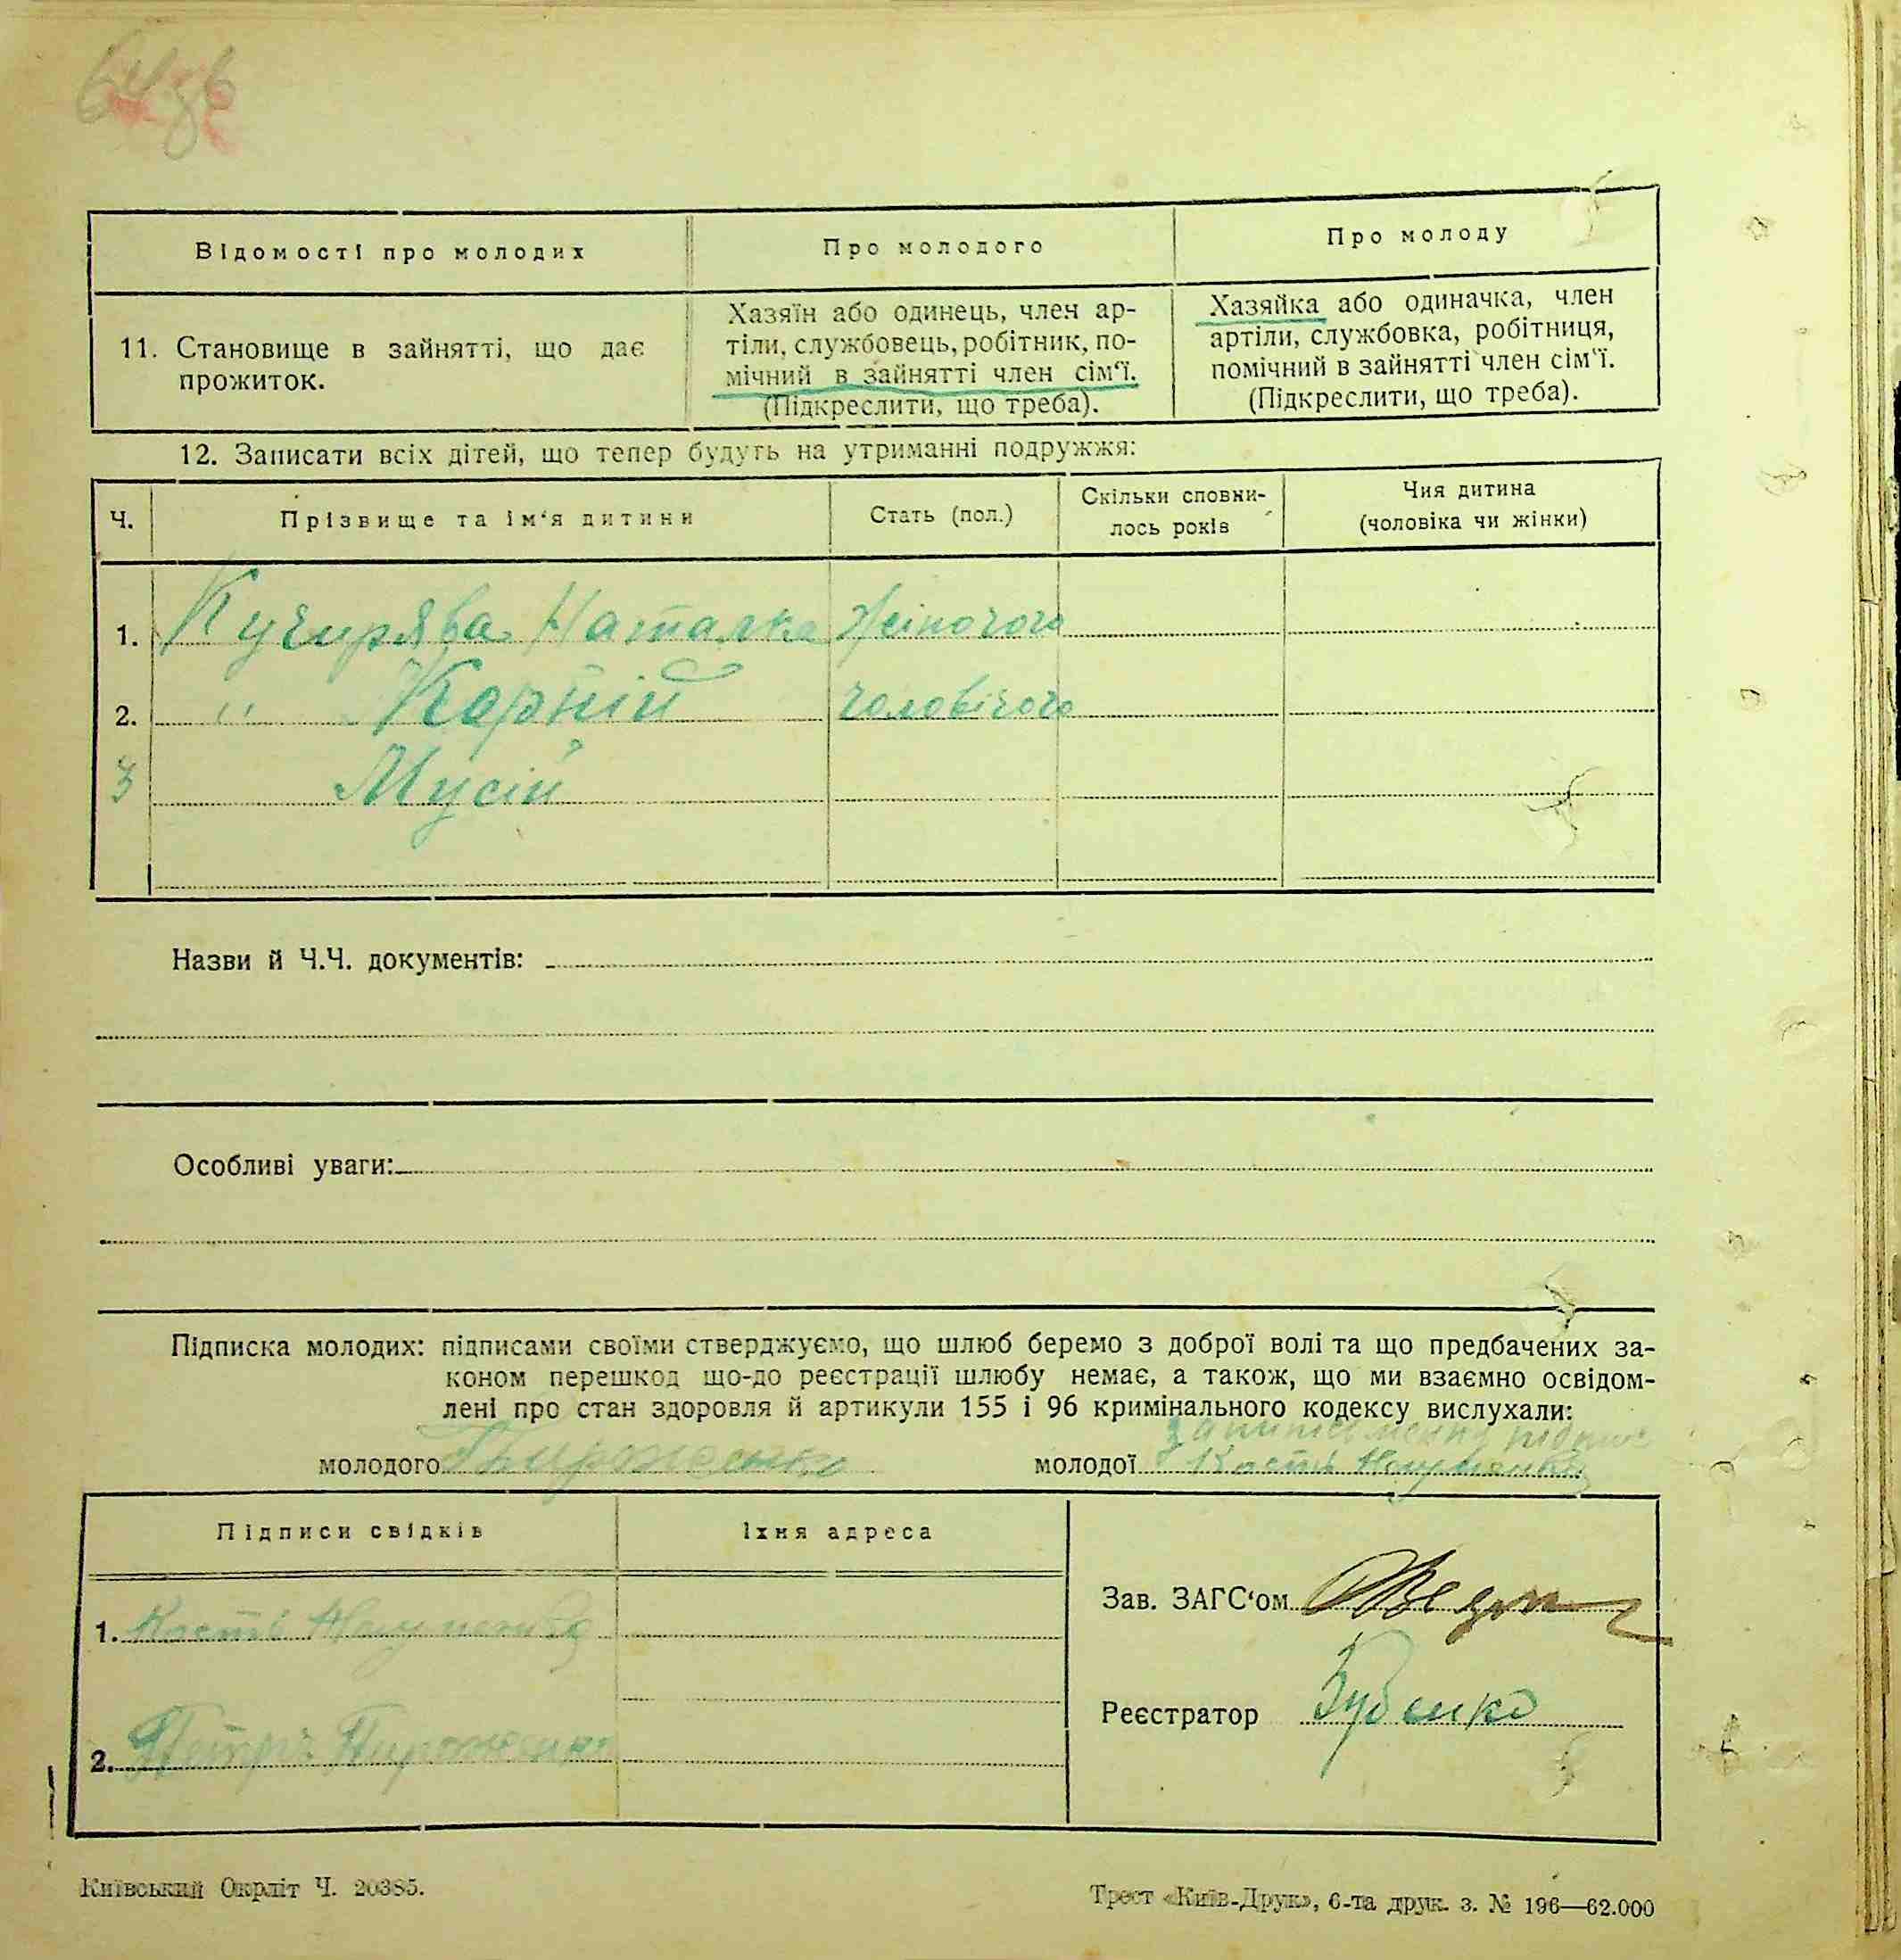 Відомості про молодих
Про молодого
Про молоду
11. Становище в зайнятті, що дає
прожиток.
Хазяїн або одинець, член ар-
тіли, службовець, робітник, по-
мічний в зайнятті член сім'ї.
(Підкреслити, що треба).
Хазяйка або одиначка, член
артіли, службовка, робітниця,
помічний в зайнятті член сім'ї.
(Підкреслити, що треба).
12. Записати всіх дітей, що тепер будуть на утриманні подружжя:
Ч.
Прізвище та ім'я дитини
Стать (пол.)
Скільки сповни-
лось років
Чия дитина
(чоловіка чи жінки)
1. Кучирява Наталка Жіночого
2. " Корній чоловічого
3 Мусій
Назви й Ч.Ч. документів:
Особливі уваги:
Підписка молодих: підписами своїми стверджуємо, що шлюб беремо з доброї волі та що предбачених за-
коном перешкод що-до реєстрації шлюбу немає, а також, що ми взаємно освідом-
лені про стан здоровля й артикули 155 і 96 кримінального кодексу вислухали:
молодого
молодої Кость Науменко
Підписи свідків
Їхня адреса
1. Кость Науменко
2. Петро
Зав. ЗАГС'ом
Реєстратор Зубенко
Київський Окрліт Ч. 20385.
Трест «Київ-Друк», 6-та друк. з. № 196—62.000